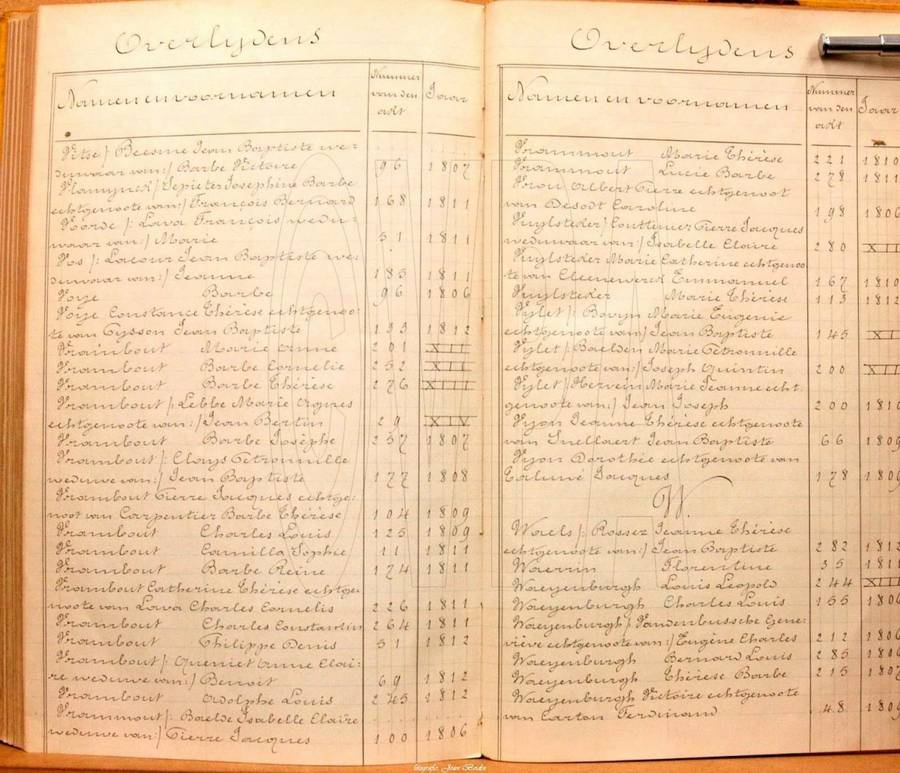 Overlydens
Namen en voornamen
Nummer van den adt
Jaar
Vitse /: Beesme Jean Baptiste we-
duwaar van:/ Barbe Victoire 96 1807
Vlamynck /: Lepieter Josephine Barbe
echtgenoote van:/ François Bernard 168 1811
Voorde /: Lava François wedu-
waar van:/ Marie 51 1811
Vos /: Lacour Jean Baptiste we-
duwaar van:/ Jeanne 183 1811
Voye Barbe 96 1806
Voye Constance Thérèse echtgenoo-
te van Gysson Jean Baptiste 193 1812
Vrambout Marie Anne 201 XIII
Vrambout Barbe Cornelie 252 XIII
Vrambout Barbe Thérèse 276 XIII
Vrambout /: Lebbe Marie Agnes
echtgenoote van:/ Jean Bertin 29 XIV
Vrambout Barbe Josèphe 257 1807
Vrambout /: Cloys Petronnille
weduwe van:/ Jean Baptiste 177 1808
Vrambout Pierre Jacques echtge-
noot van Carpentier Barbe Thérèse 104 1809
Vrambout Charles Louis 125 1809
Vrambout Camilla Sophie 11 1811
Vrambout Barbe Reine 174 1811
Vrambout Catherine Thérèse echtge-
noote van Lava Charles Cornelis 226 1811
Vrambout Charles Constantin 264 1811
Vrambout Philippe Denis 51 1812
Vrambout /: Queniet Anne Clai-
re weduwe van:/ Benoit 69 1812
Vrambout Adolphe Louis 245 1812
Vrammout /: Baelde Isabelle Claire
weduwe van:/ Pierre Jacques 100 1806
Overlydens
Namen en voornamen
Nummer van den adt
Jaar
Vrammout Marie Thérèse 221 1810
Vrammout Lucie Barbe 278 1811
Vrou Albert Pierre echtgenoot
van Desodt Caroline 198 1806
Vuylsteker /: Couttenier Pierre Jacques
weduwaar van:/ Isabelle Claire 280 XII
Vuylsteker Marie Catherine echtgenoo-
te van Cleenewerck Emmanuel 167 1810
Vuylsteker Marie Thérèse 113 1812
Vylet /: Bavyn Marie Eugenie
echtgenoote van:/ Jean Baptiste 145 XII
Vylet /: Baelden Marie Petronnille
echtgenoote van:/ Joseph Quintin 200 XII
Vylet /: Hervein Marie Jeanne echt-
genoote van:/ Jean Joseph 200 1810
Vyon Jeanne Thérèse echtgenoote
van Snellaert Jean Baptiste 66 1809
Vyon Dorothée echtgenoote van
Jacques 178 1809
W.
Waels /: Rossez Jeanne Thérèse
echtgenoote van:/ Jean Baptiste 282 1812
Waerrin Florentine 35 1811
Waeyenburgh Louis Leopold 244 XIII
Waeyenburgh Charles Louis 155 1806
Waeyenburgh /: Vandenbussche Gene-
viève echtgenoote van:/ Eugène Charles 212 1806
Waeyenburgh Bernard Louis 285 1806
Waeyenburgh Thérèse Barbe 215 1807
Waeyenburgh Victoire echtgenoote
van Carton Ferdinand 48 1809